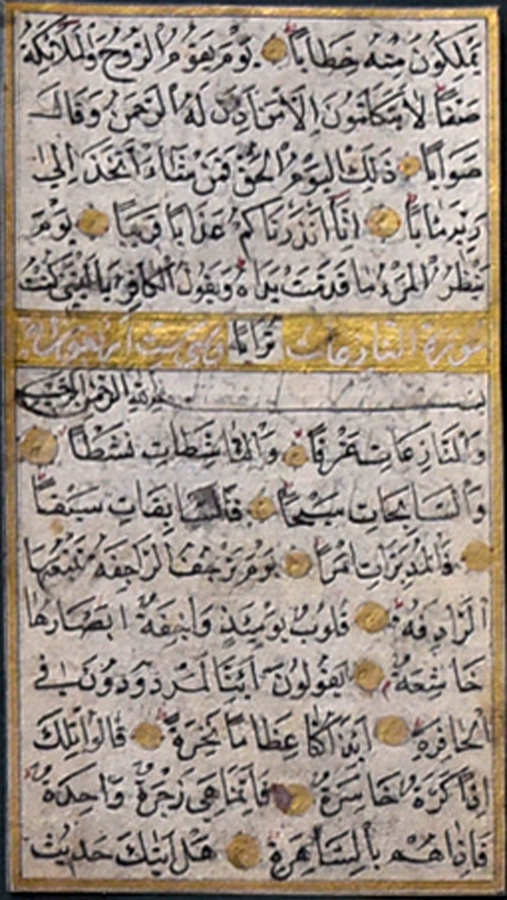 يَمْلِكُونَ مِنْهُ خِطَابًا يَوْمَ يَقُومُ الرُّوحُ وَالْمَلَائِكَةُ
صَفًّا لَا يَتَكَلَّمُونَ إِلَّا مَنْ أَذِنَ لَهُ الرَّحْمَنُ وَقَالَ
صَوَابًا ذَلِكَ الْيَوْمُ الْحَقُّ فَمَنْ شَاءَ اتَّخَذَ إِلَى
رَبِّهِ مَآبًا إِنَّا أَنْذَرْنَاكُمْ عَذَابًا قَرِيبًا يَوْمَ
يَنْظُرُ الْمَرْءُ مَا قَدَّمَتْ يَدَاهُ وَيَقُولُ الْكَافِرُ يَا لَيْتَنِي كُنْتُ
سورة النازعات تُرَابًا وهي ست اربعون
بسم الله الرحمن الرحيم
وَالنَّازِعَاتِ غَرْقًا وَالنَّاشِطَاتِ نَشْطًا
وَالسَّابِحَاتِ سَبْحًا فَالسَّابِقَاتِ سَبْقًا
فَالْمُدَبِّرَاتِ أَمْرًا يَوْمَ تَرْجُفُ الرَّاجِفَةُ تَتْبَعُهَا
الرَّادِفَةُ قُلُوبٌ يَوْمَئِذٍ وَاجِفَةٌ أَبْصَارُهَا
خَاشِعَةٌ يَقُولُونَ أَئِنَّا لَمَرْدُودُونَ فِي
الْحَافِرَةِ أَئِذَا كُنَّا عِظَامًا نَخِرَةً قَالُوا تِلْكَ
إِذًا كَرَّةٌ خَاسِرَةٌ فَإِنَّمَا هِيَ زَجْرَةٌ وَاحِدَةٌ
فَإِذَا هُمْ بِالسَّاهِرَةِ هَلْ أَتَيكَ حَدِيثُ